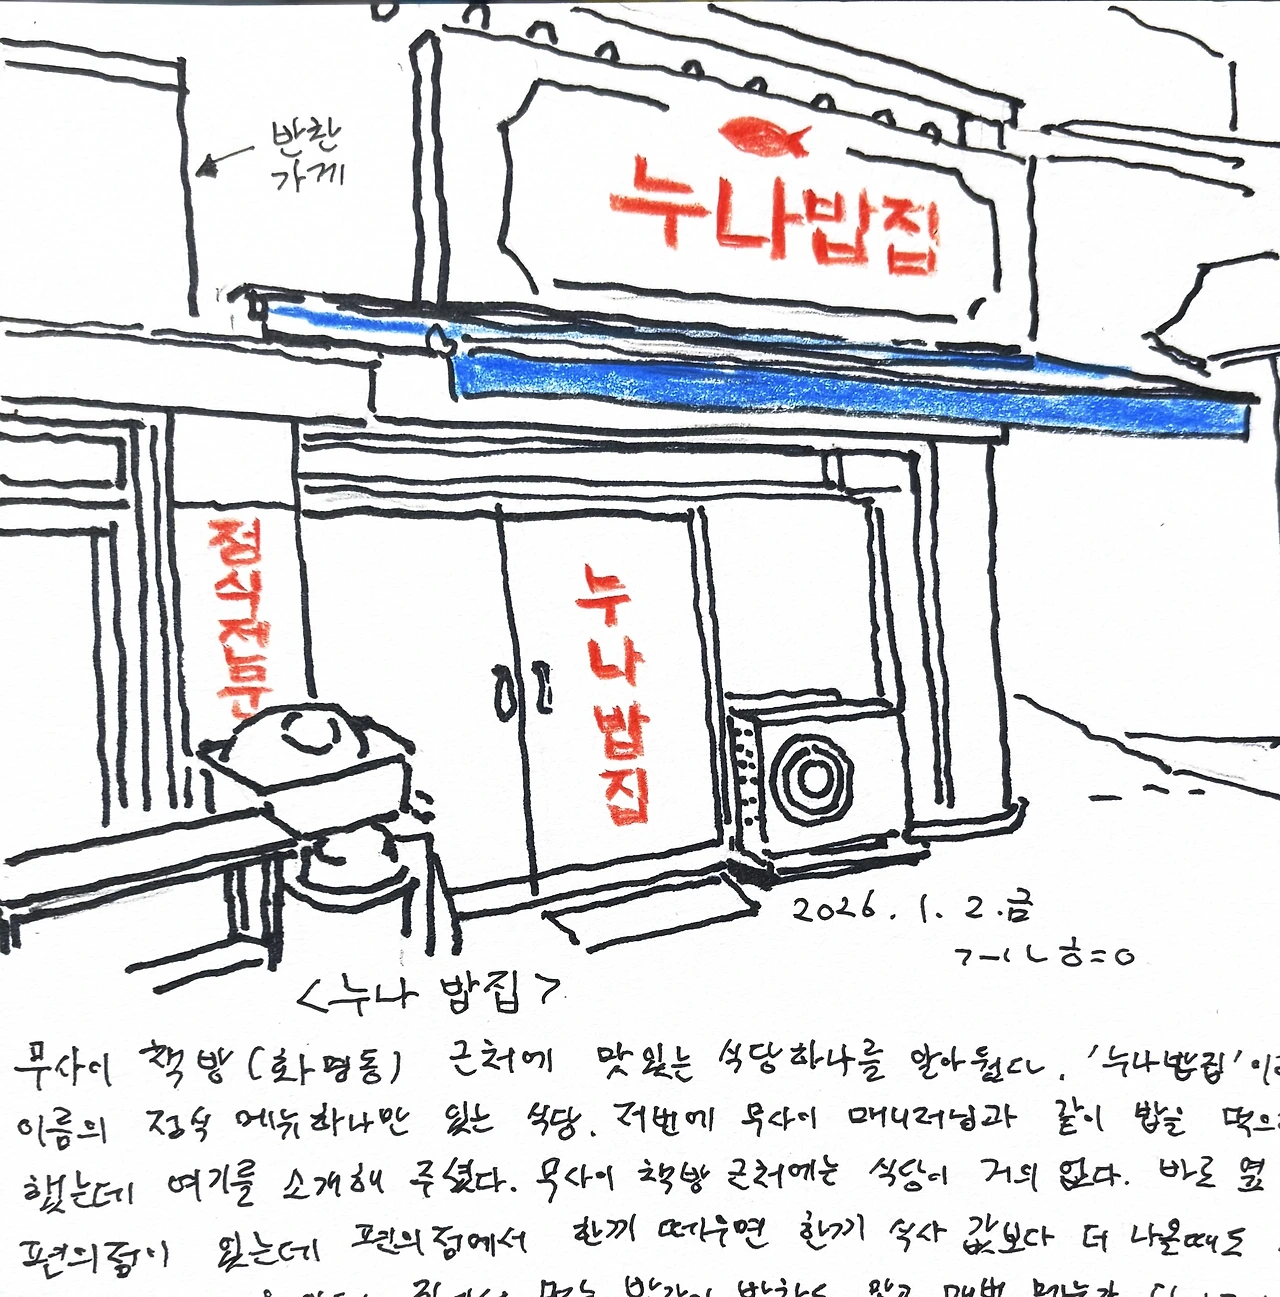 반찬
가게
누나밥집
정식전문
누나밥집
2026. 1. 2. 금
<누나 밥집>
무사이 책방(화명동) 근처에 맛있는 식당하나를 알아뒀다. '누나밥집'이라
이름의 정식 메뉴하나만 있는 식당. 저번에 무사이 매니저님과 같이 밥을 먹으러
했는데 여기를 소개해 주셨다. 무사이 책방 근처에는 식당이 거의 없다. 바로 옆
편의점이 있는데 편의점에서 한끼 떼우면 한끼 식사 값보다 더 나올때도